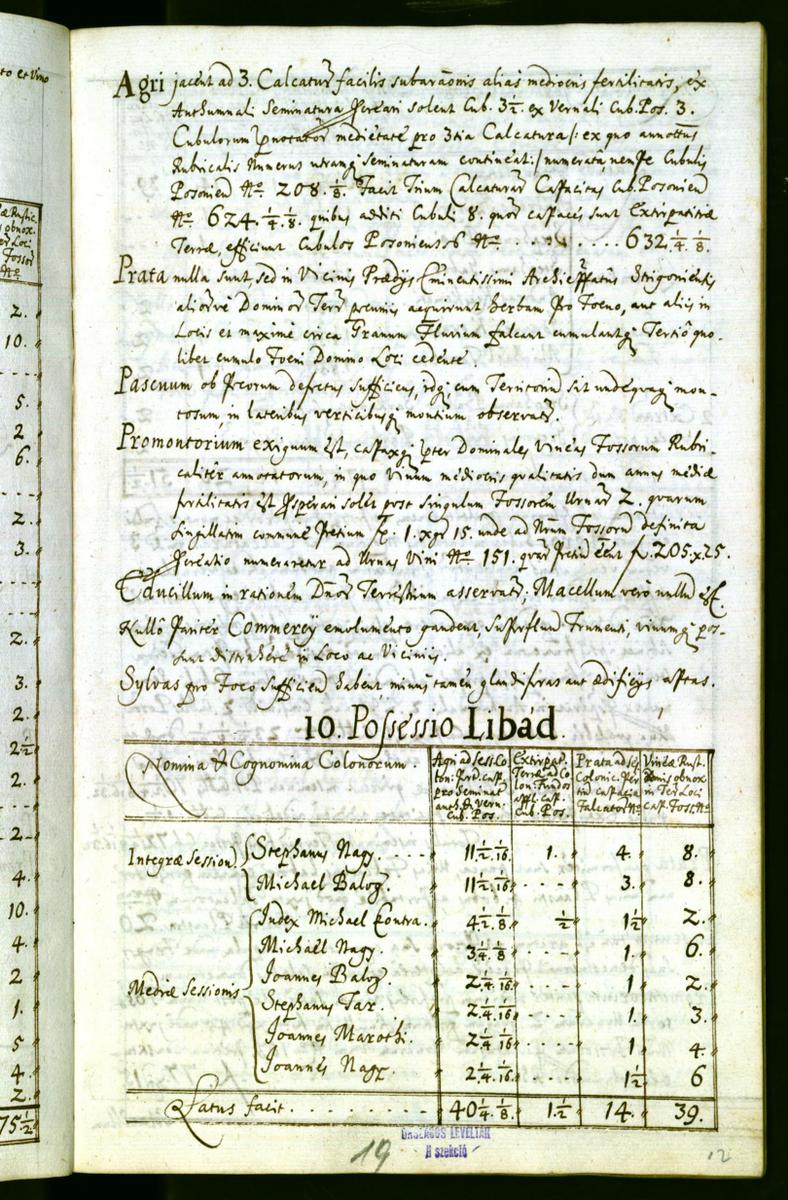 to et Vino
Agri jacent ad 3. Calcatur facilis subarationis alias mediocris fertilitatis, ex
Authumnali Seminatura Sperari solent Cub. 3 1/2. ex Vernali Cub. Pos. 3.
Cubulorum medietate pro 3tia Calcatura /: ex quo annottus
Rubricalis Numerus utramq seminaturam contineat :/ numerata, nempe Cubulis
Posonien No 208. 1/8. Facit Trium Calcaturar Capacitas Cub. Posonien
No 624. 1/4. 1/8. quibus additi Cubuli 8. quor capaces sunt Extirpatitiæ
Terræ, efficiunt Cubulos Posonienses No . . . . . . . 632. 1/4. 1/8.
Prata nulla sunt, sed in Vicinis Prædys Eminentissimi Archieppatus Strigoniensis
aliorve Dominor Terr pecuniis acquirunt herbam pro Foeno, aut aliis in
Locis et maximè circa Granum Fluvium falcant cumulantq Tertiô quo-
libet cumulo Foeni Domino Loci cedente.
Pascuum ob Pecorum defectus sufficiens, idq cum Territorium sit undequaq mon-
tosum, in lateribus verticibusq montium observatur.
Promontorium exiguum est, capaxq præter Dominales Vineas Fossorum Rubri-
caliter annotatorum, in quo Vinum mediocris qualitatis dum annus mediæ
fertilitatis est Sperari solet post singulum Fossorem Urnar 2. quarum
singillatim commune Pretium f. 1. xgr 15. unde ad Nrum Fossorum definita
Speratio numeraretur ad Urnas Vini No 151. quar Pretium f. 205. x. 25.
Educillum in rationem Dnor Terrestrium asservatur; Macellum vero nullum est.
Nullô Pariter Commercy emolumento gaudent, superfluum Frumenti, vinumq pos-
sunt distrahere in Loco ac Viciniis.
Sylvas pro Foco sufficien habent, minus tamen glandiferas aut ædificys aptas.
10. Possessio Libad.
Nomina & Cognomina Colonorum. Agri ad Sess. Co
lon. Jud. cap.
pro Seminat
auth. & Vern.
Cub. Pos. Extirpat.
Terræ ad Co
lon. Fundos
appl. cap.
Cub. Pos. Prata ad Ses.
Colonic. Per
tin. capacia
Falcator No Vineæ Rust.
obnox
in Ter. Loci
cap. Foss. No
Integræ Session. Stephanus Nagy. . . . . 11 1/2. 1/16 1. 4. 8.
Michael Balog. 11 1/2. 1/16 . . . . 3. 8.
Iudex Michael Kontra. 4 1/2. 1/8 1/2 1 1/2 2.
Michael Nagy. 3 1/4. 1/8 . . . . 1. 6.
Mediæ Sessionis Joannes Balog 2 1/4. 1/16 . . . . 1 2.
Stephanus Tar. 2 1/4. 1/16 . . . . 1. 3.
Joannes Marothi. 2 1/4. 1/16 . . . . 1 4.
Joannes Nagy. 2 1/4. 1/16 . . . . 1 1/2 6
Latus facit. . . . . . . . . 40 1/4. 1/8. 1. 1/2 14. 39.
19
ORSZÁGOS LEVÉLTÁR
H szekció
12
æ Rustic.
obnox.
Ter. Loci
Fossor
No
2.
10.
5.
2
6.
2.
3.
2.
3.
2.
2 1/2
2.
2
4.
10.
4.
2
1.
5
4.
2.
75 1/2